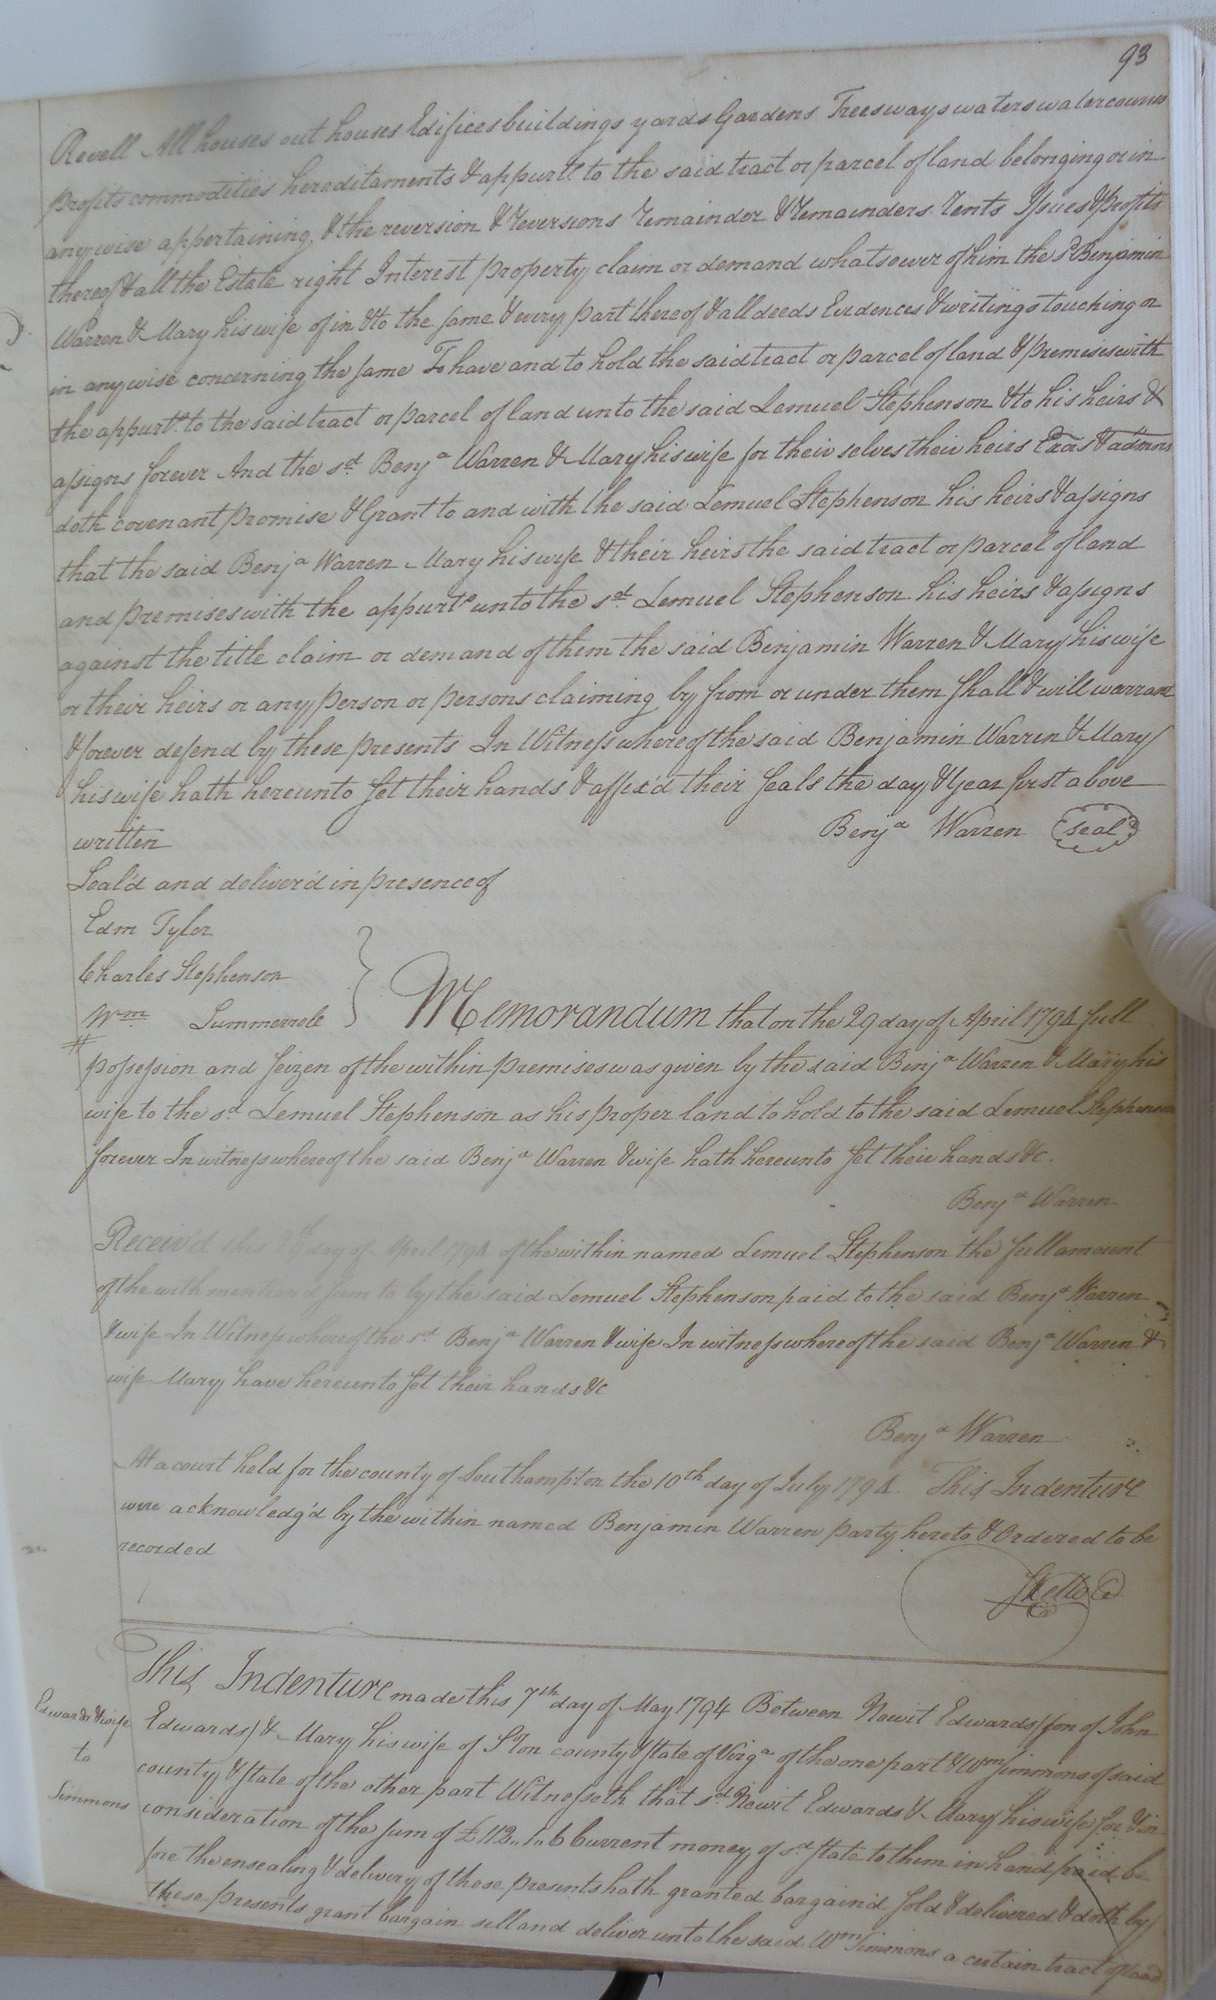 93
Revell All houses out houses Edifices buildings yards Gardens Trees ways waters watercourses
profits commodities hereditaments & appurts to the said tract or parcel of land belonging or in
anywise appertaining, & the reversion & reversions remainder & remainders rents Issues & profits
thereof & all the Estate right Interest property claim or demand whatsoever of him the sd Benjamin
Warren & Mary his wife of in & to the same & every part thereof & all deeds Evidences & writings touching or
in anywise concerning the same To have and to hold the said tract or parcel of land & premises with
the appurts to the said tract or parcel of land unto the said Lemuel Stephenson & to his heirs &
assigns forever And the sd Benja Warren & Mary his wife for their selves their heirs Exors & admors
doth covenant promise & Grant to and with the said Lemuel Stephenson his heirs & assigns
that the said Benja Warren Mary his wife & their heirs the said tract or parcel of land
and premises with the appurts unto the sd Lemuel Stephenson his heirs & assigns
against the title claim or demand of them the said Benjamin Warren & Mary his wife
or their heirs or any person or persons claiming by from or under them shall & will warrant
& forever defend by these presents In Witness whereof the said Benjamin Warren & Mary
his wife hath hereunto set their hands & affix'd their seals the day & year first above
written
Benja Warren seal
Seal'd and deliver'd in presence of
Edm Tyler
Charles Stephenson
Wm Summerrele
Memorandum that on the 29 day of April 1794 full
possession and seizen of the within premises was given by the said Benja Warren & Mary his
wife to the sd Lemuel Stephenson as his proper land to hold to the said Lemuel Stephenson
forever In witness whereof the said Benja Warren & wife hath hereunto set their hands &c.
Benja Warren
Receiv'd this day of April 1794 of the within named Lemuel Stephenson the full amount
of the with mentiond sum to by the said Lemuel Stephenson paid to the said Benja Warren
& wife In Witness whereof the sd Benja Warren & wife In witness whereof the said Benja Warren &
wife Mary have hereunto set their hands &c
Benja Warren
At a court held for the county of Southampton the 10th day of July 1794. This Indenture
were acknowledg'd by the within named Benjamin Warren party hereto & Ordered to be
recorded
Edwards & wife
to
Simmons
This Indenture made this 7th day of May 1794 Between Newit Edwards (son of John
Edwards) & Mary his wife of Ston county & state of Virga of the one part & Wm Simmons of said
county & state of the other part Witnesseth that sd Newit Edwards & Mary his wife for & in
consideration of the sum of £112,,1,,6 Current money of sd state to them in hand paid be
fore the ensealing & delivery of these presents hath granted bargain'd sold & delivered & doth by
these presents grant bargain sell and deliver unto the said Wm Simmons a certain tract of land